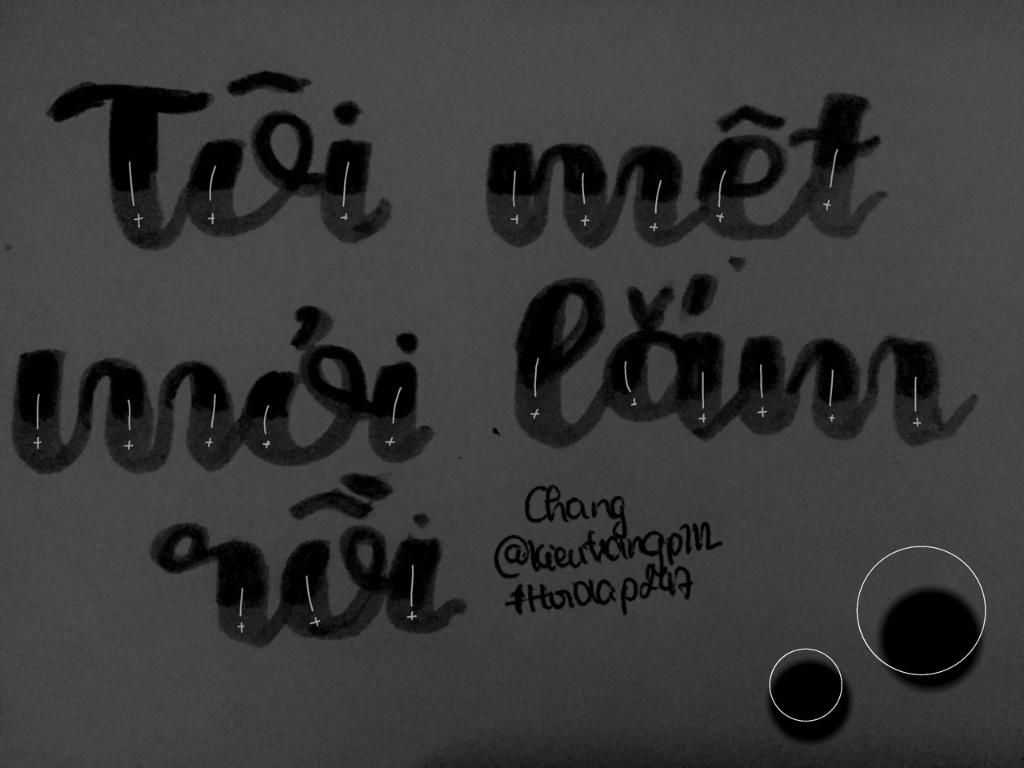 Tôi mệt
mỏi lắm
rồi
Chang
#HoiDap247